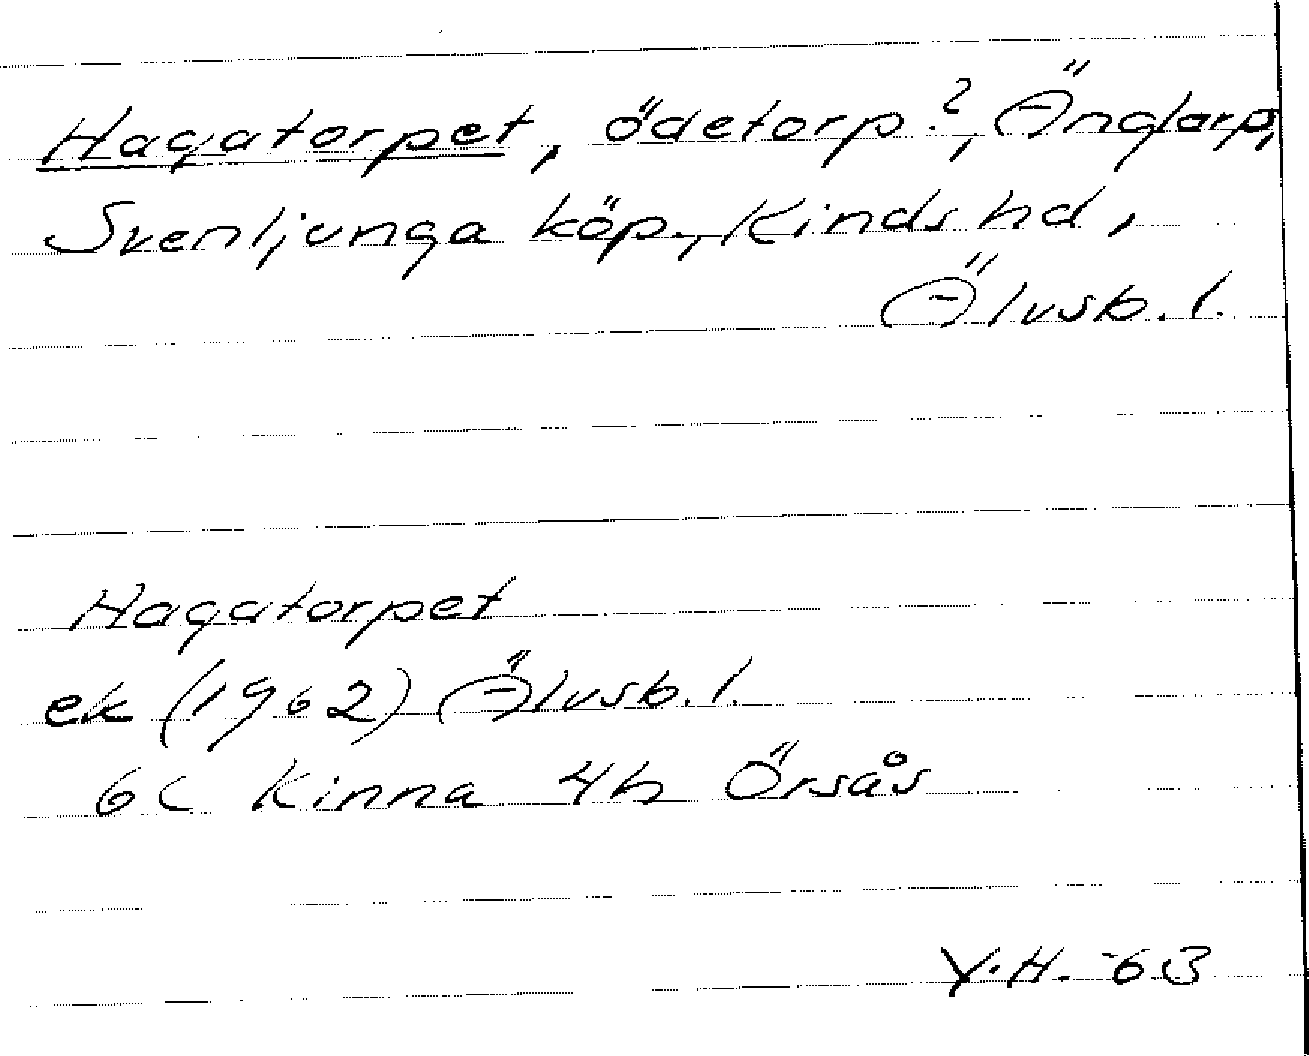 Hagatorpet, ödetorp?, Änglarp,
Svenljunga köp., Kinds hd,
Älvsb. l.
Hagatorpet
ek (1962) Älvsb. l.
6C Kinna 4h Örsås
Y.H. -63